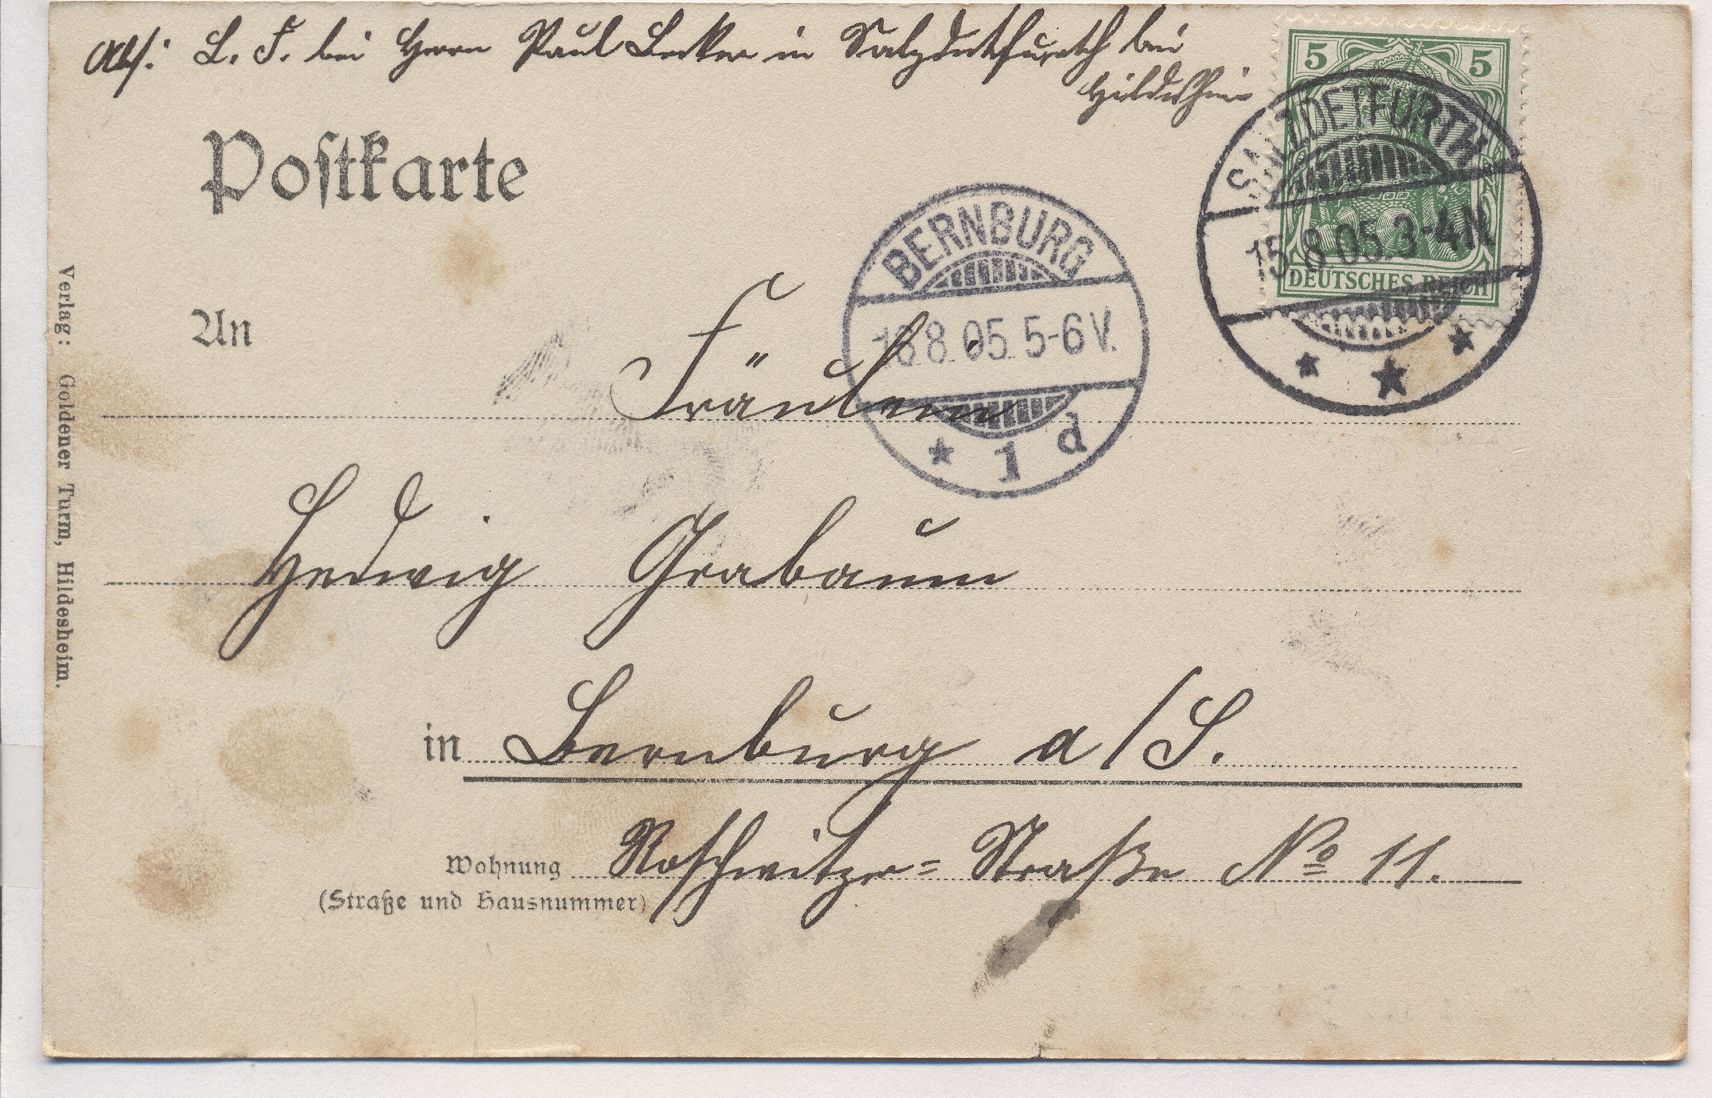 Abs: L. F. bei Herrn Paul Becker in Salzdetfurth bei
Hildesheim
5 5
DEUTSCHES REICH
SALZDETFURTH
15.8.05.3-4N
Postkarte
BERNBURG
16.8.05.5-6V.
1 d
An Fräulein
Hedwig Grabaum
in Bernburg a/S.
Wohnung Roschwitzer-Straße No 11.
(Straße und Hausnummer)
Verlag: Goldener Turm, Hildesheim.